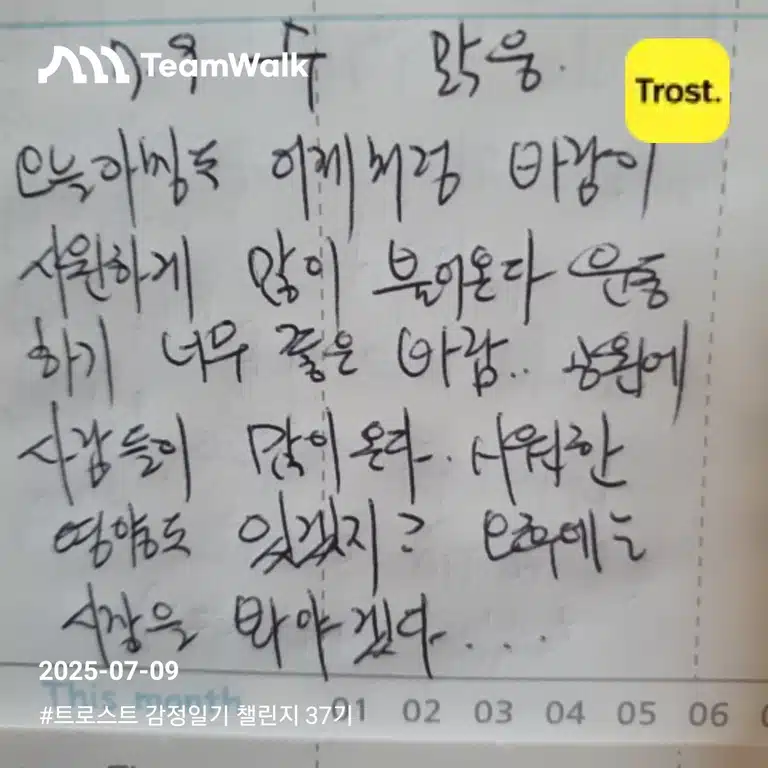 TeamWalk
수 맑음.
Trost.
오늘아침도 어제처럼 바람이
시원하게 많이 불어온다 운동
하기 너무 좋은 바람.. 공원에
사람들이 많이 온다.. 시원한
영향도 있겠지? 오후에는
시장을 봐야겠다....
2025-07-09
This month 01 02 03 04 05 06
#트로스트 감정일기 챌린지 37기